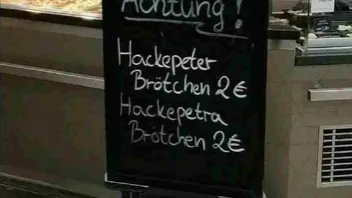 Achtung!
Hackepeter
Brötchen 2€
Hackepetra
Brötchen 2€